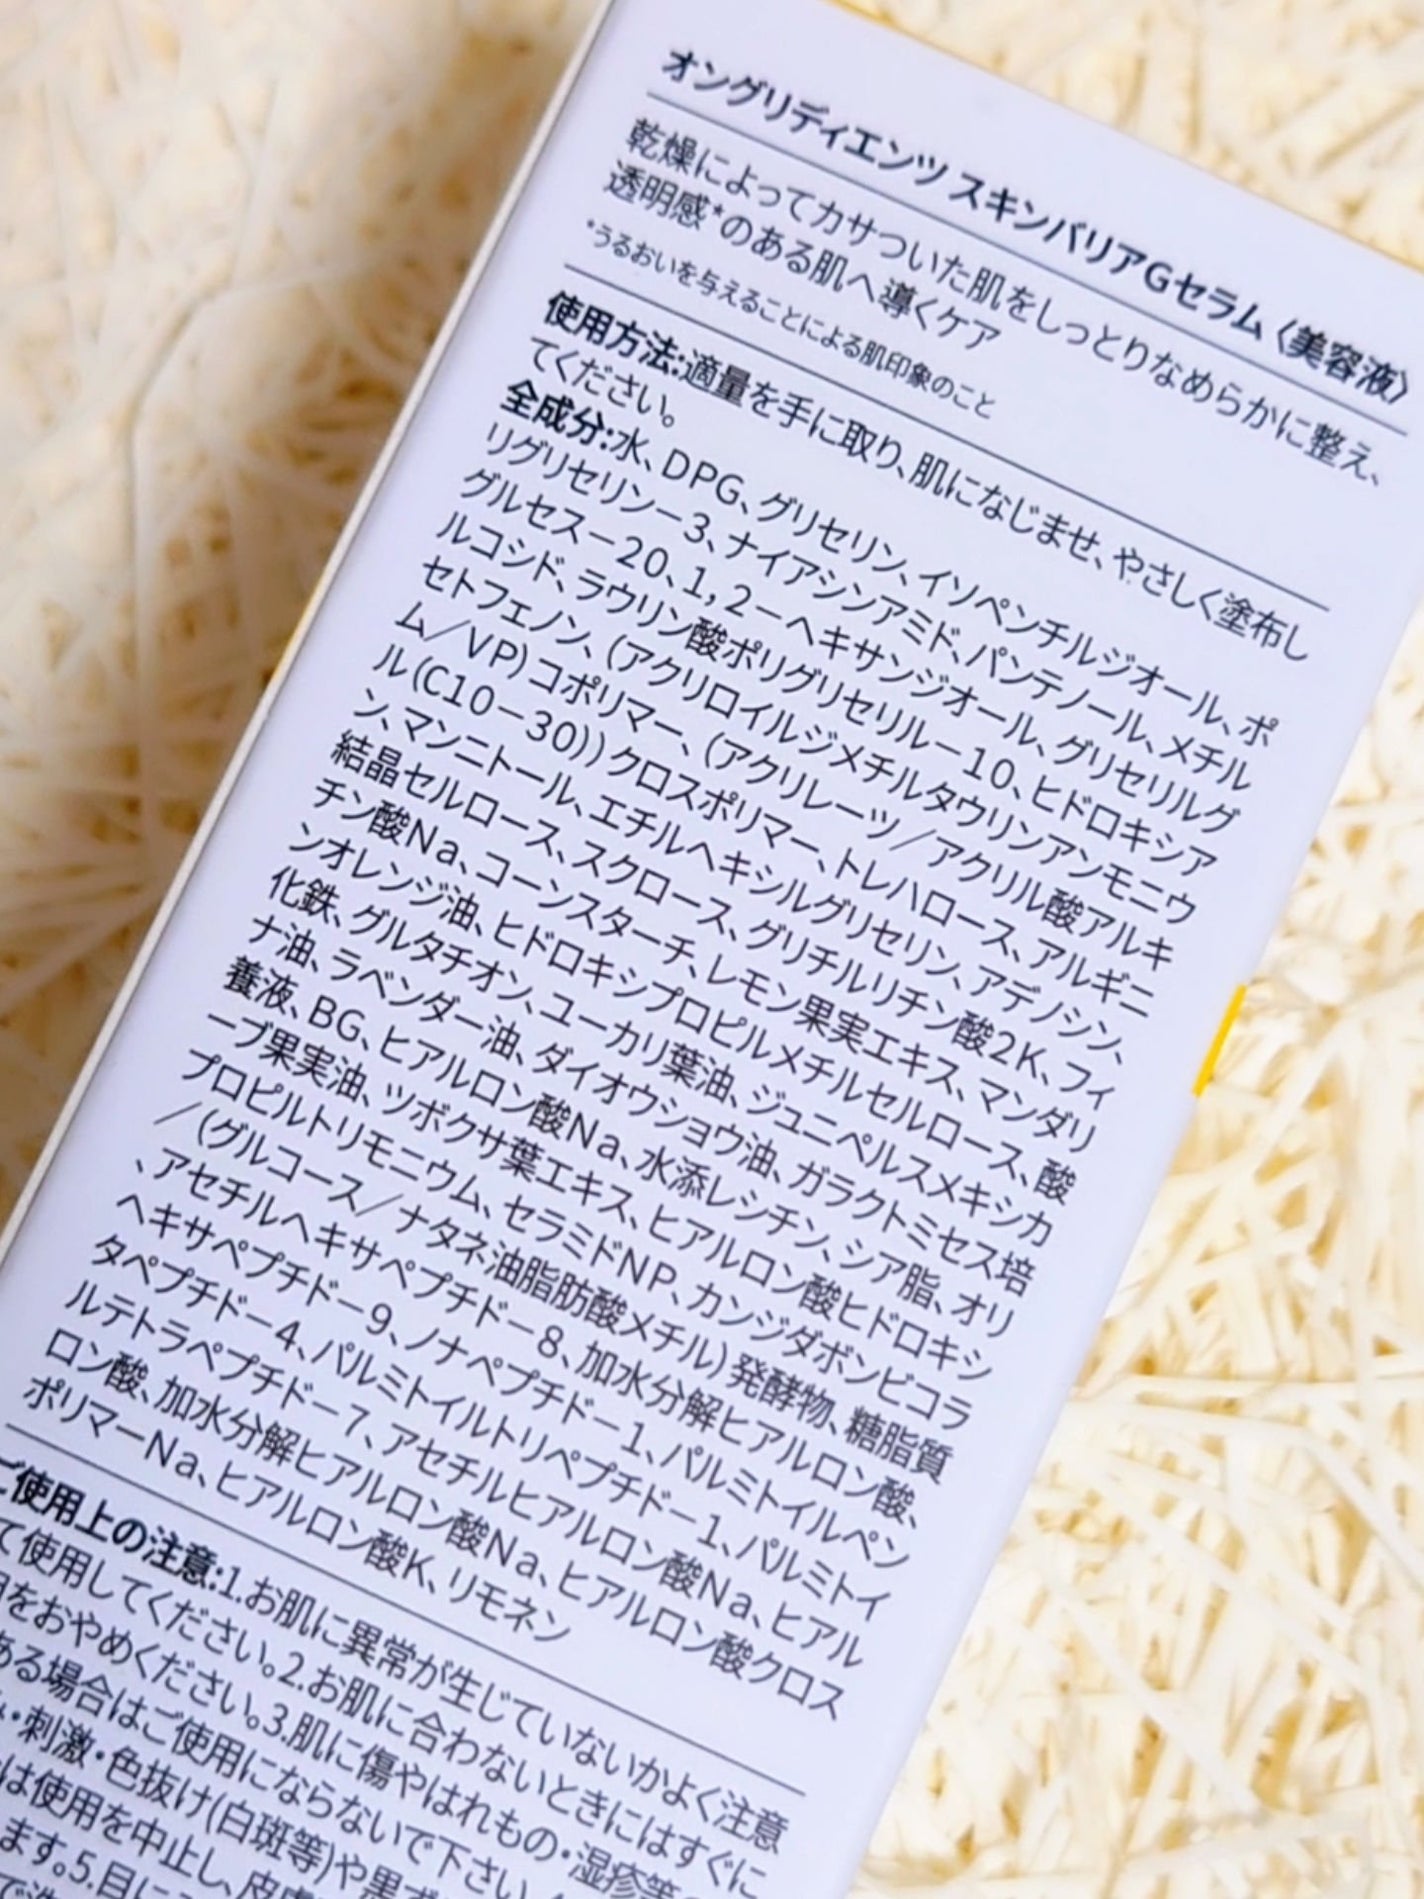 オングリディエンツ スキンバリアGセラム〈美容液〉
乾燥によってカサついた肌をしっとりなめらかに整え、
透明感*のある肌へ導くケア
*うるおいを与えることによる肌印象のこと
使用方法:適量を手に取り、肌になじませ、やさしく塗布し
てください。
全成分:水、DPG、グリセリン、イソペンチルジオール、ポ
リグリセリン－3、ナイアシンアミド、パンテノール、メチル
グルセス－20、1，2－ヘキサンジオール、グリセリルグ
ルコシド、ラウリン酸ポリグリセリル－10、ヒドロキシア
セトフェノン、(アクリロイルジメチルタウリンアンモニウ
ム／VP)コポリマー、(アクリレーツ／アクリル酸アルキ
ル(C10－30))クロスポリマー、トレハロース、アルギニ
ン、マンニトール、エチルヘキシルグリセリン、アデノシン、
結晶セルロース、スクロース、グリチルリチン酸2K、フィ
チン酸Na、コーンスターチ、レモン果実エキス、マンダリ
ンオレンジ油、ヒドロキシプロピルメチルセルロース、酸
化鉄、グルタチオン、ユーカリ葉油、ジュニペルスメキシカ
ナ油、ラベンダー油、ダイオウショウ油、ガラクトミセス培
養液、BG、ヒアルロン酸Na、水添レシチン、シア脂、オリ
ーブ果実油、ツボクサ葉エキス、ヒアルロン酸ヒドロキシ
プロピルトリモニウム、セラミドNP、カンジダボンビコラ
／(グルコース／ナタネ油脂肪酸メチル)発酵物、糖脂質
、アセチルヘキサペプチド－8、加水分解ヒアルロン酸、
ヘキサペプチド－9、ノナペプチド－1、パルミトイルペン
タペプチド－4、パルミトイルトリペプチド－1、パルミトイ
ルテトラペプチド－7、アセチルヒアルロン酸Na、ヒアル
ロン酸、加水分解ヒアルロン酸Na、ヒアルロン酸クロス
ポリマーNa、ヒアルロン酸K、リモネン
ご使用上の注意:1.お肌に異常が生じていないかよく注意
て使用してください。2.お肌に合わないときにはすぐに
をおやめください。3.肌に傷やはれもの・湿疹等
ある場合はご使用にならないで下さい
・刺激・色抜け(白斑等)や黒
は使用を中止し、皮
ます。5.目に